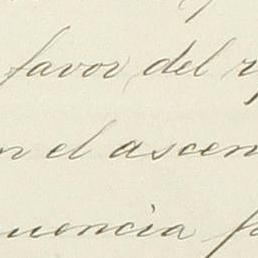 favor del
n el ascen
uencia